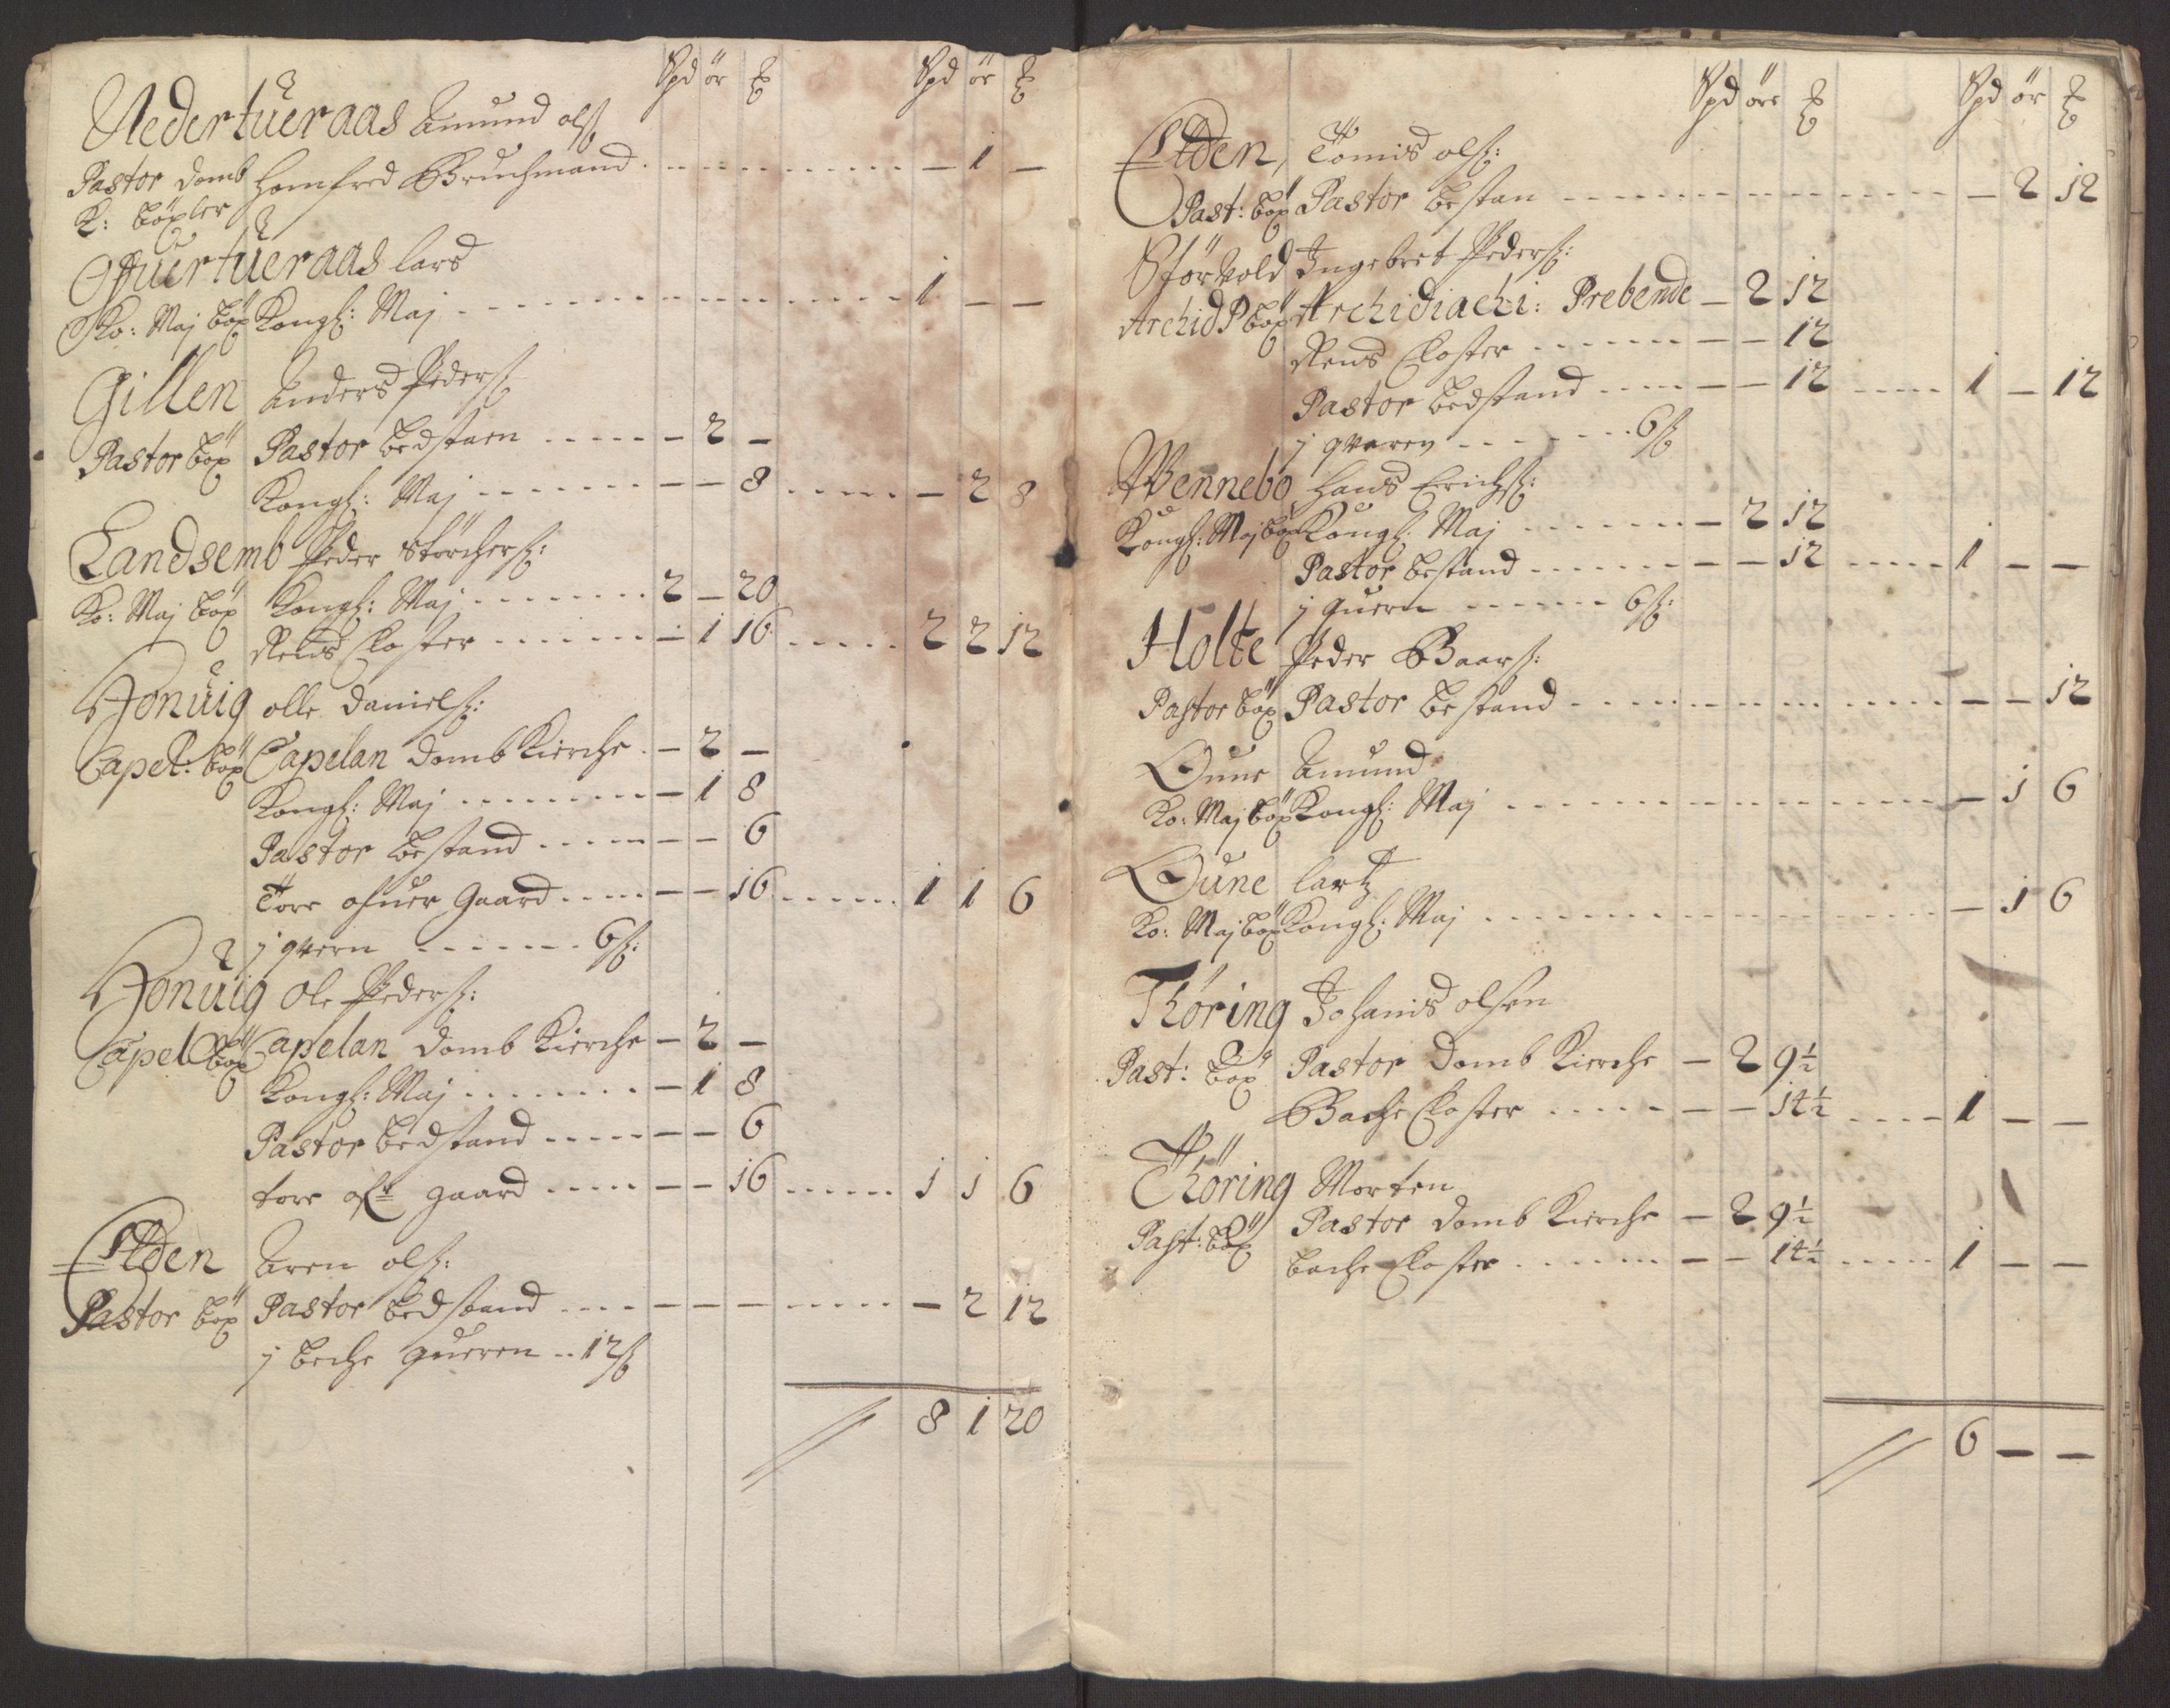 Spd ör ℔ Spd ör ℔
Nedertueraas Amund ols:
Pastor Domb Homfred Bruchmand - - - 1 -
K: böxler
Offuertueraas Lars
Ko: Maj böx Kongl: Maj - - - 1 - -
Gillen Anders Peders:
Pastor böx Pastor Bedstaen - - - 2 -
Kongl: Maj - - - 8 - - - 2 8
Landsemb Peder Störchers:
Ko: Maj böx Kongl: Maj - - - 2 - 20
Reins Closter - - - 1 16 - - - 2 2 12
Honuig Olle Daniels:
Capel: böx Capelan Domb Kierche - 2 -
Kongl: Maj - - - 1 8
Pastor Bestand - - - 6
Tore ofuer Gaard - - - 16 - - - 1 1 6
j qvern - - - 6 s:
Honuig Ole Peders:
Capel böx Capelan Domb Kierche - 2 -
Kongl: Maj - - - 1 8
Pastor Bedstand - - - 6
tore ofr gaard - - - 16 - - - 1 1 6
Elden Aren ols:
Pastor böx Pastor Bedstand - - - 2 12
j beche queren - - 12 s
8 1 20
Spd öre ℔ Spd ör ℔
Elden, Tomis ols:
Past: böx Pastor Bestan - - - 2 12
Störvold Ingebret Peders:
Archid P böx Archidiachi: Prebende - 2 12
Reins Closter - - - 12
Pastor Bedstand - - - 12 - - - 1 - 12
j qveren - - - 6 s
Wennebo Hans Erichs:
Kongl: Maj böx Kongl: Maj - - - 2 12
Pastor Bestand - - - 12 - - - 1 - -
j quern - - - 6 s:
Holte Peder Baars:
Pastor böx Pastor Bestand - - - 12
Oune Amund
Ko: Maj böx Kongl: Maj - - - 1 6
Oune Lartz
Ko: Maj böx Kongl: Maj - - - 1 6
Thöring Johanis olsen
Past: böx Pastor Domb Kierche - 2 9½
Bache Closter - - - 14½ - - - 1 - -
Thöring Morten
Past: böx Pastor Domb Kierche - 2 9½
bache Closter - - - 14½ - - - 1 - -
6 - -